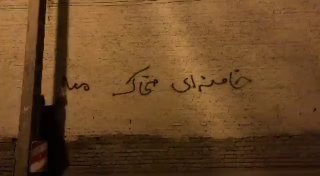 خامنه‌ای ضحاک